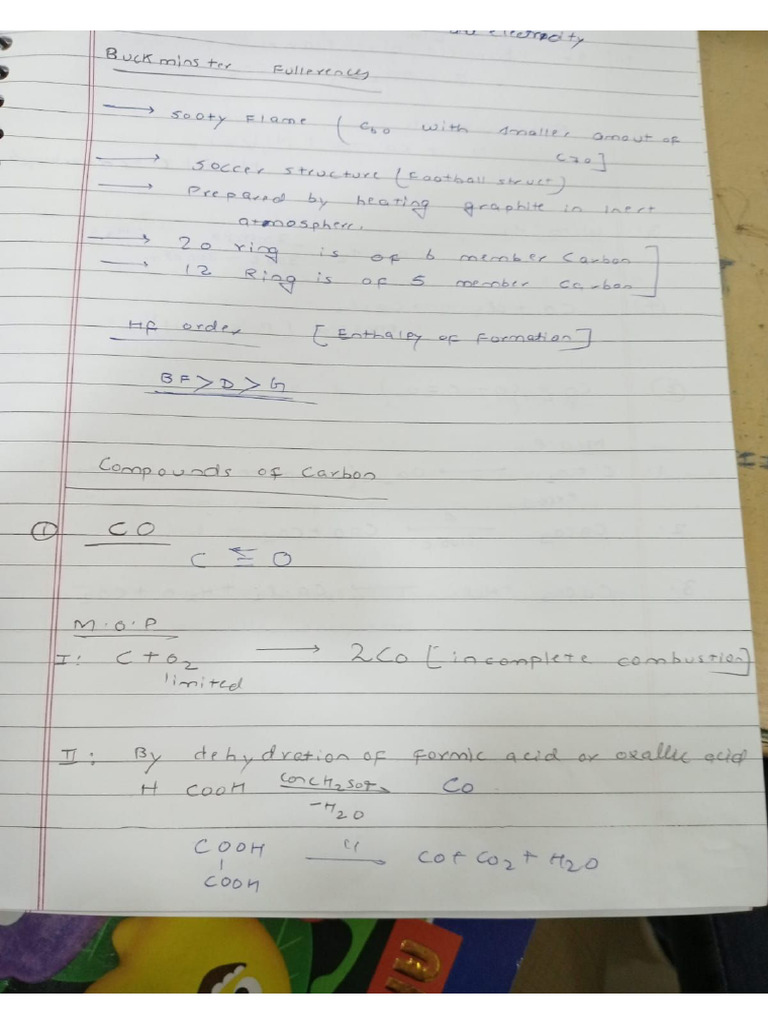 electricity
Buckminster Fullerences
→ Sooty Flame ( C60 with smaller amout of
C70]
→ Soccer structure (Football struct)
→ Prepared by heating graphite in inert
atmosphere.
→ 20 ring is of 6 member Carbon
→ 12 Ring is of 5 member carbon
Hf order [Enthalpy of Formation]
BF > D > G
Compounds of Carbon
① CO
C ≡ O
M.O.P
I: C + O2 → 2CO [incomplete combustion]
limited
II: By dehydration of formic acid or oxallic acid
H COOH conc H2SO4 → CO
-H2O
COOH 〃 → CO + CO2 + H2O
COOH